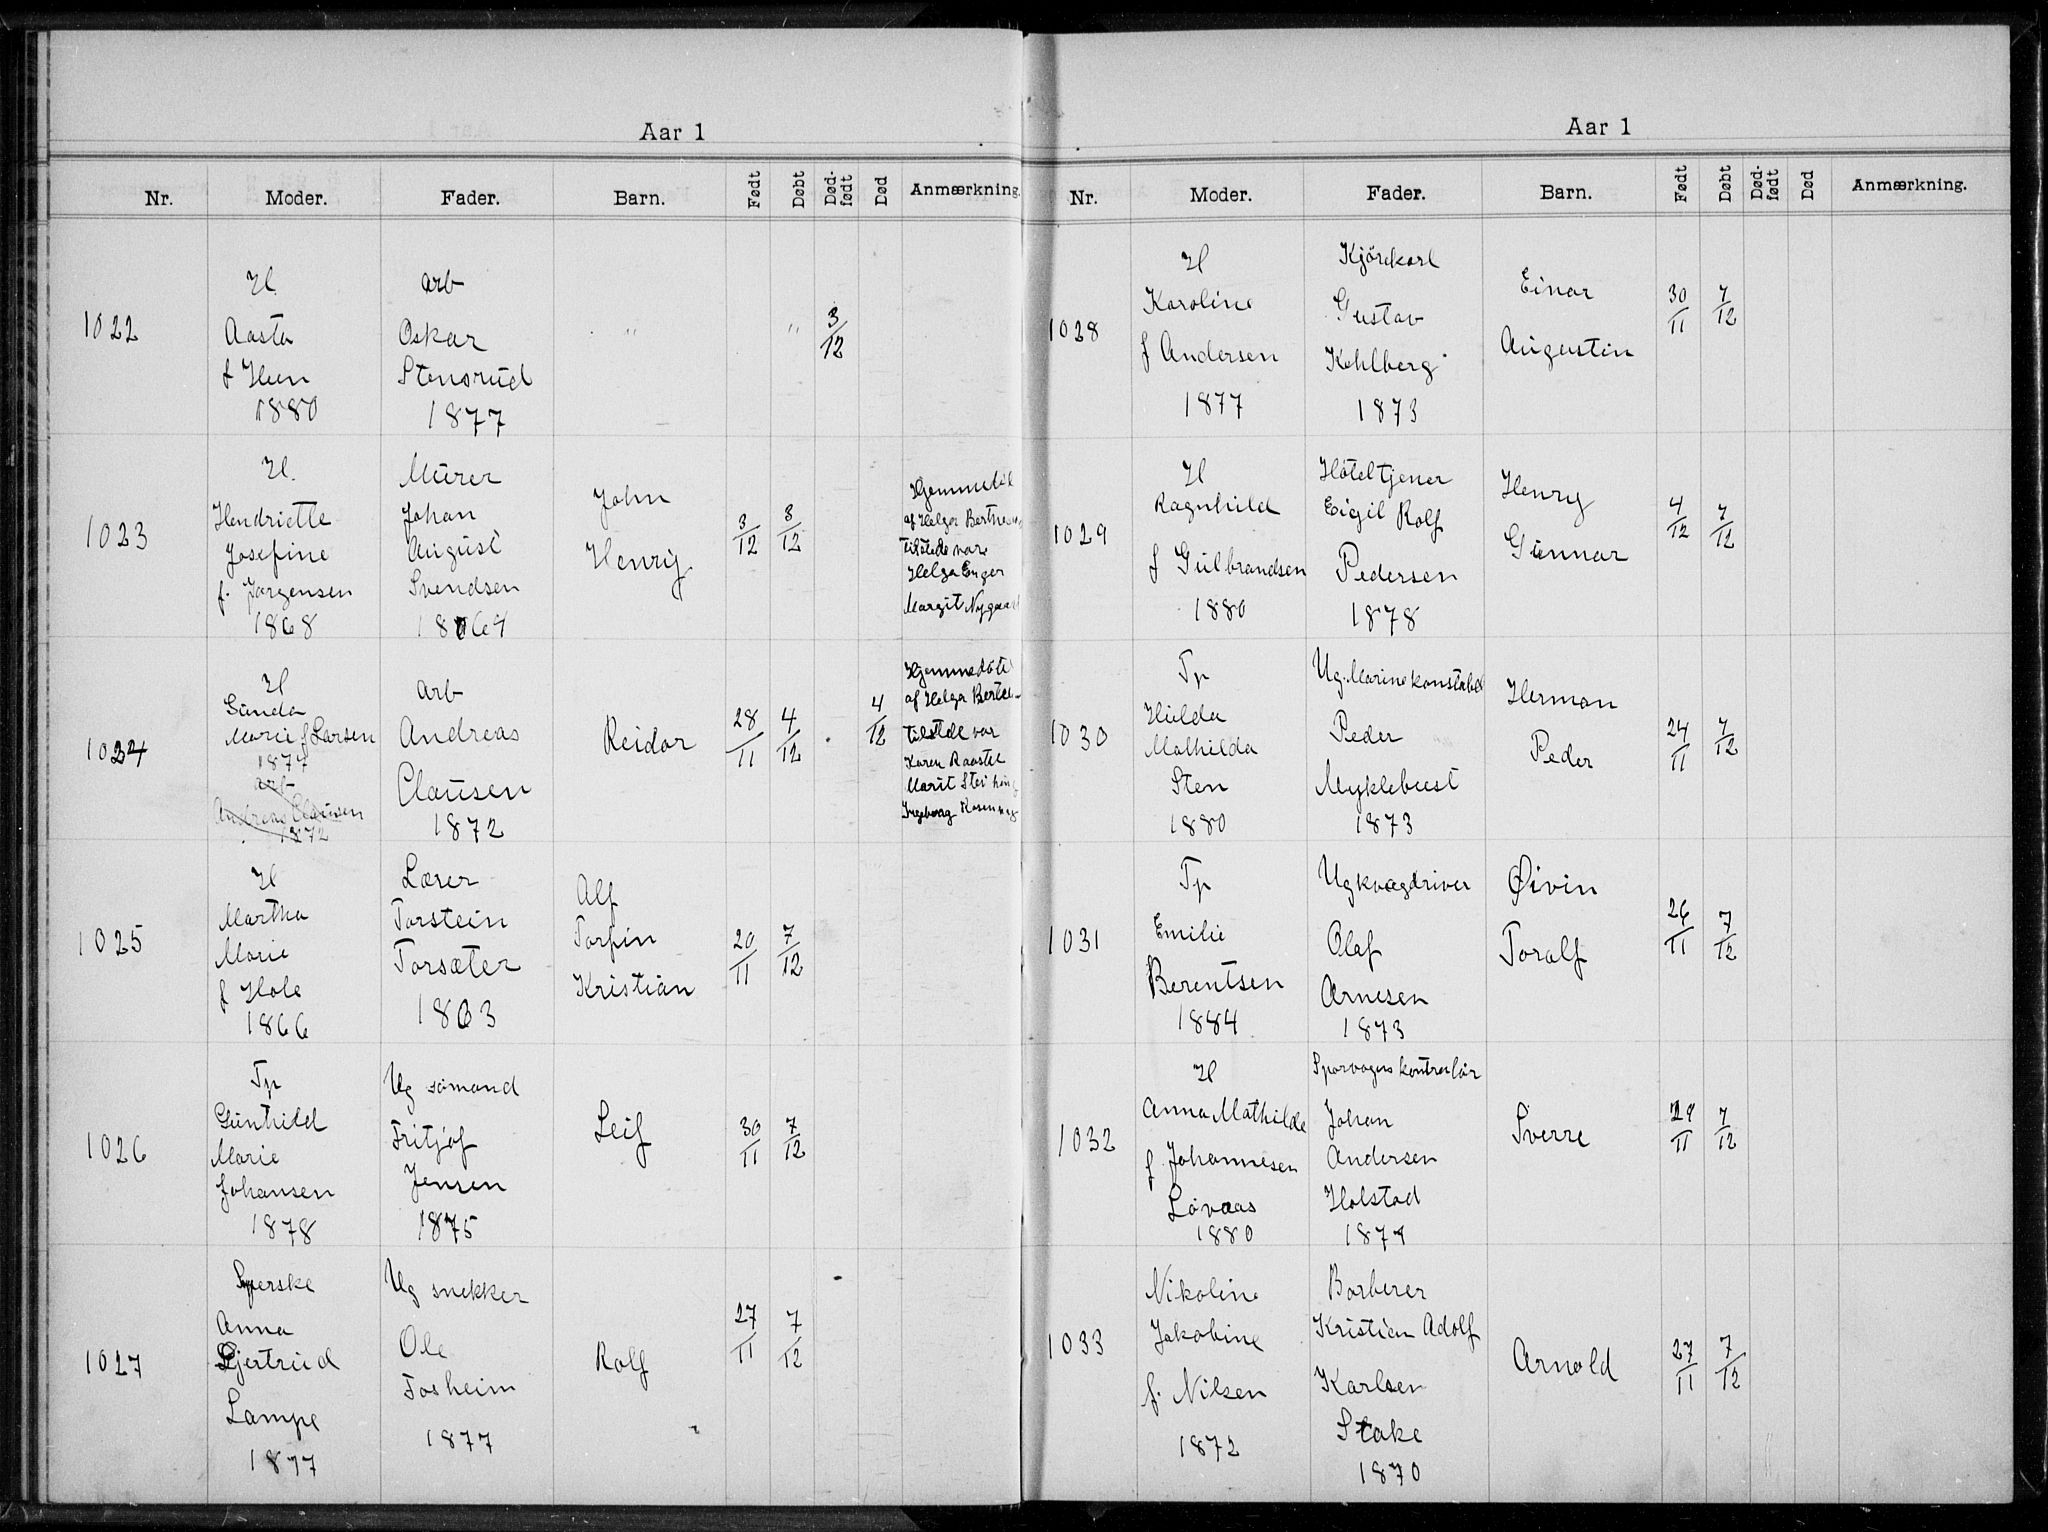 Aar 1
Nr. Moder. Fader. Barn. Født Døbt Død-født Død Anmærkning.
1022
H
Aasta
f Heen
1880
arb
Oskar
Stensrud
1877
"
"
3/12
1023
H.
Hendriette
Josefine
f. Jørgensen
1868
Murer
Johan
August
Svendsen
1864
John
Henry
3/12
3/12
Hjemmedøbt
af Helga
tilstede vare
Helga Enger
Margit Nygaard
1024
H
Gunda
Marie f Larsen
1877
arb
Andreas Clausen
1872
arb
Andreas
Clausen
1872
Reidar
28/11
4/12
4/12
Hjemmedøbt
af Helga
tilstede var
Karen
Marit
Ingeborg
1025
H
Martha
Marie
f Hole
1866
Lærer
Torstein
Torsæter
1863
Alf
Torfin
Kristian
20/11
7/12
1026
Tp
Gunhild
Marie
Johansen
1878
Ug sømand
Fritjof
Jensen
1875
Leif
30/11
7/12
1027
Syerske
Anna
Gjertrud
Lampe
1877
Ug snekker
Ole
Tosheim
1877
Rolf
27/11
7/12
Aar 1
Nr. Moder. Fader. Barn. Født Døbt Død-født Død Anmærkning.
1028
H
Karoline
f Andersen
1877
Kjørekarl
Gustav
Kehlberg
1873
Einar
Augustin
30/11
7/12
1029
H
Ragnhild
f Gulbrandsen
1880
Hôteltjener
Eigil Rolf
Pedersen
1878
Henry
Gunnar
4/12
7/12
1030
Tp
Hulda
Mathilda
Sten
1880
Ug. Marinekonstabel
Peder
Myklebust
1873
Herman
Peder
24/11
7/12
1031
Tp
Emilie
Berentsen
1884
Ug kvægdriver
Olaf
Arnesen
1873
Øivin
Toralf
26/11
7/12
1032
H
Anna Mathilde
f Johannesen
Løvaas
1880
Sporvogns kontrollør
Johan
Andersen
Holstad
1874
Sverre
29/11
7/12
1033
Nikoline
Jakobine
f. Nilsen
1872
Barberer
Kristian Adolf
Karlsen
Stake
1870
Arnold
27/11
7/12